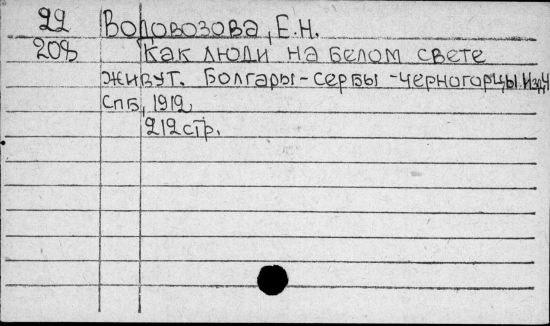 22 Водовозова, Е.Н.
208 Как люди на белом свете
живут. Болгары-сербы-черногорцы. Изд.4
СПБ, 1912
212 стр.